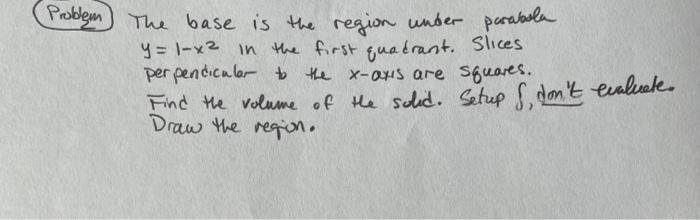 Problem The base is the region under parabola
y = 1-x² in the first quadrant. Slices
perpendicular to the x-axis are squares.
Find the volume of the solid. Setup ∫, don't evaluate.
Draw the region.